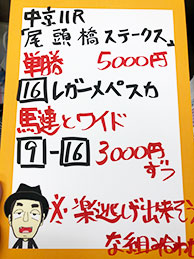 中京11R
「尾頭橋ステークス」
単勝 5000円
16 レガーメペスカ
馬連とワイド
9-16 3000円
ずつ
※楽逃げ出来そう
な組み合わせ